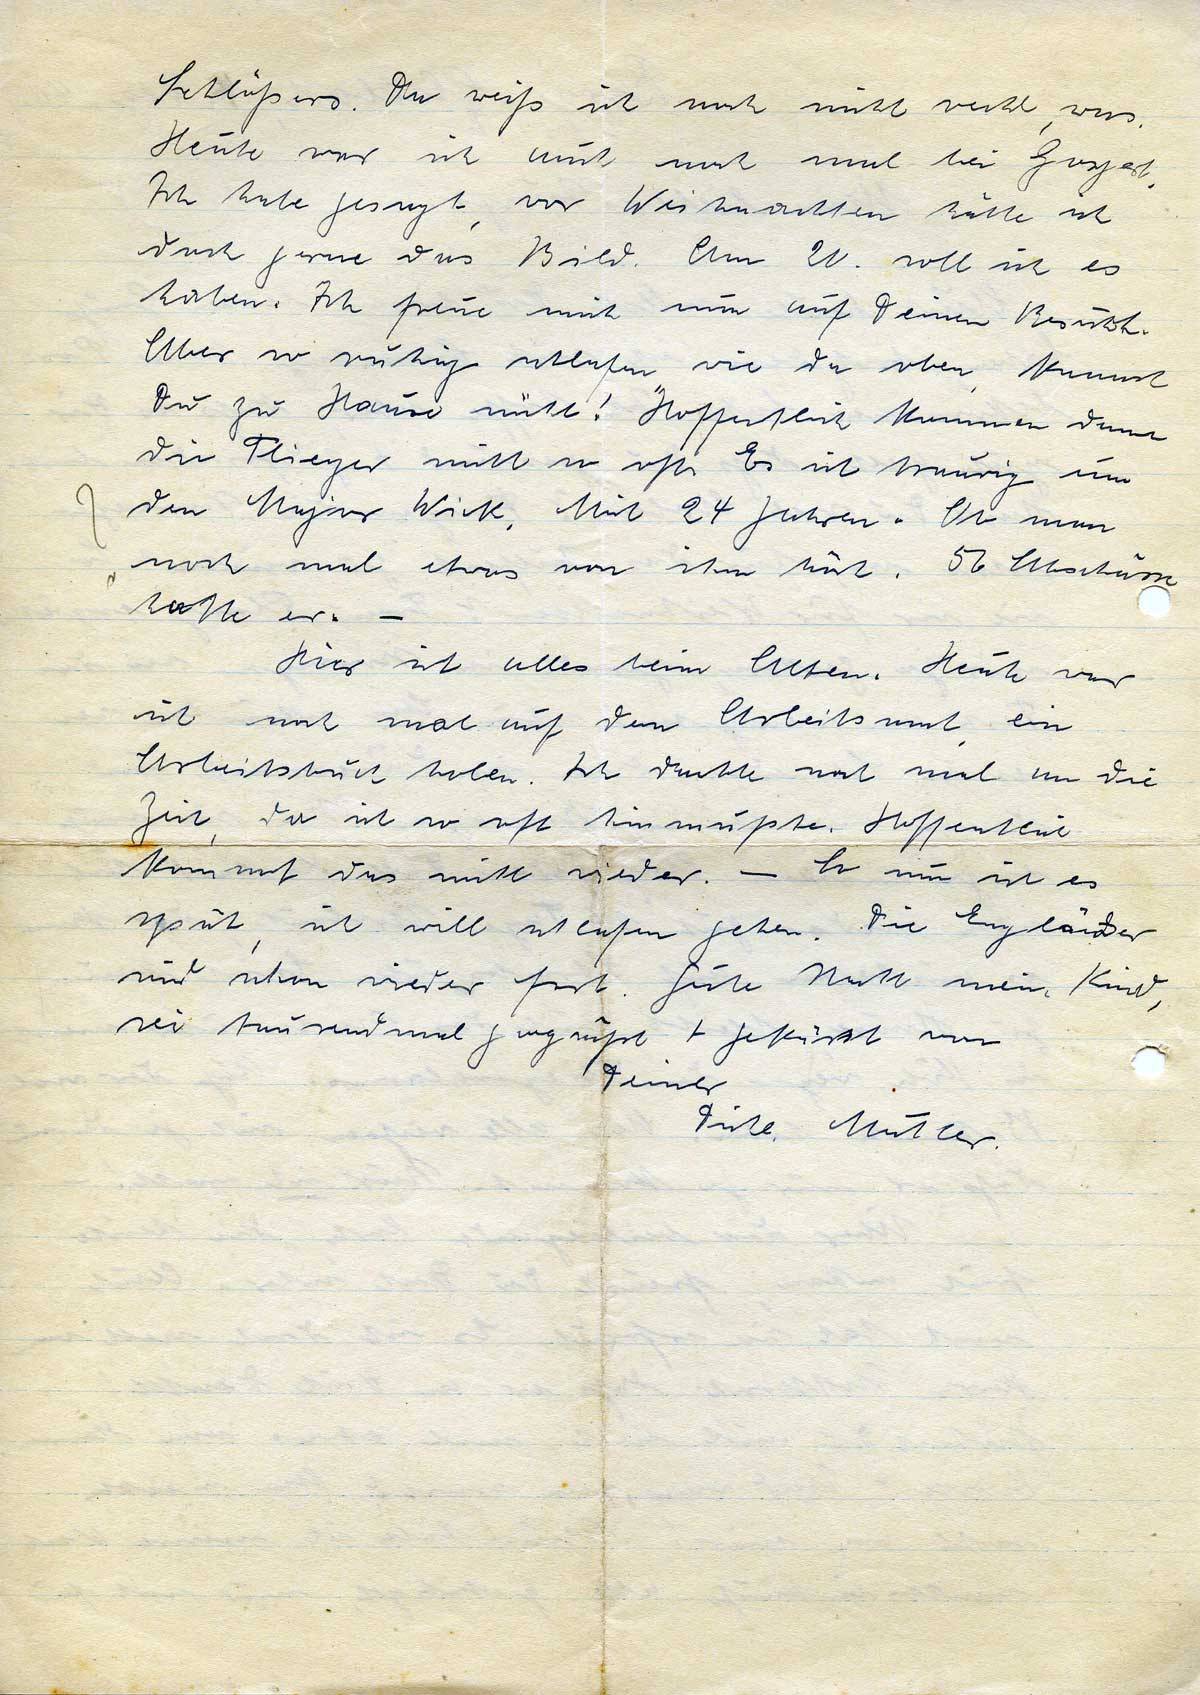 Schlößers. Da weiß ich noch nicht recht, was.
Heute war ich auch noch mal bei
Ich habe gesagt, vor Weihnachten hätte ich
doch gerne das Bild. Am 20. soll ich es
haben. Ich freue mich nun auf Deinen Besuch.
Aber so ruhig schlafen wie da oben, kannst
Du zu Hause nicht! Hoffentlich kommen dann
die Flieger nicht so oft. Es ist traurig um
den Major Wick. Mit 24 Jahren. Ob man
noch mal etwas von ihm hört. 56 Abschüsse
hatte er. —
Hier ist alles beim Alten. Heute war
ich noch mal auf dem Arbeitsamt, ein
Arbeitsbuch holen. Ich dachte noch mal an die
Zeit, da ich so oft hinmußte. Hoffentlich
kommt das nicht wieder. — So nun ist es
spät, ich will schlafen gehen. Die Engländer
sind schon wieder fort. Gute Nacht mein Kind,
sei tausendmal gegrüßt + geküsst von
Deiner
Mutter.